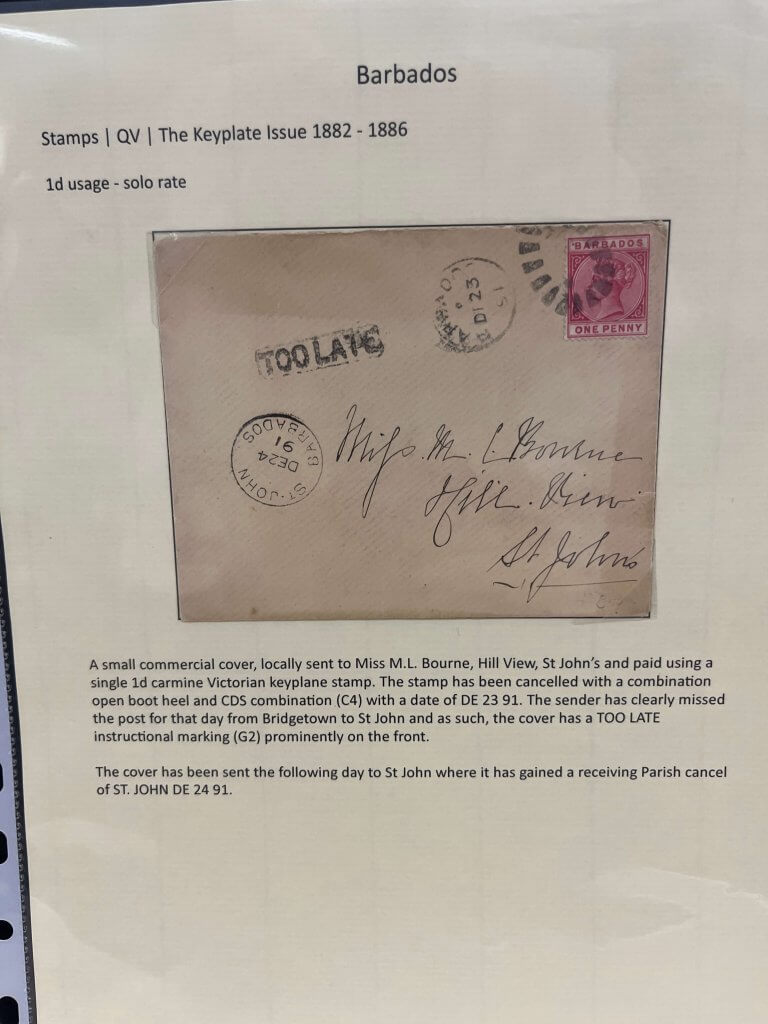 Barbados
Stamps | QV | The Keyplate Issue 1882 - 1886
1d usage - solo rate
BARBADOS
ONE PENNY
TOO LATE
ST. JOHN
BARBADOS
DE 24
91
Miss. M. L. Bourne
Hill. View.
St John's
A small commercial cover, locally sent to Miss M.L. Bourne, Hill View, St John's and paid using a
single 1d carmine Victorian keyplane stamp. The stamp has been cancelled with a combination
open boot heel and CDS combination (C4) with a date of DE 23 91. The sender has clearly missed
the post for that day from Bridgetown to St John and as such, the cover has a TOO LATE
instructional marking (G2) prominently on the front.
The cover has been sent the following day to St John where it has gained a receiving Parish cancel
of ST. JOHN DE 24 91.